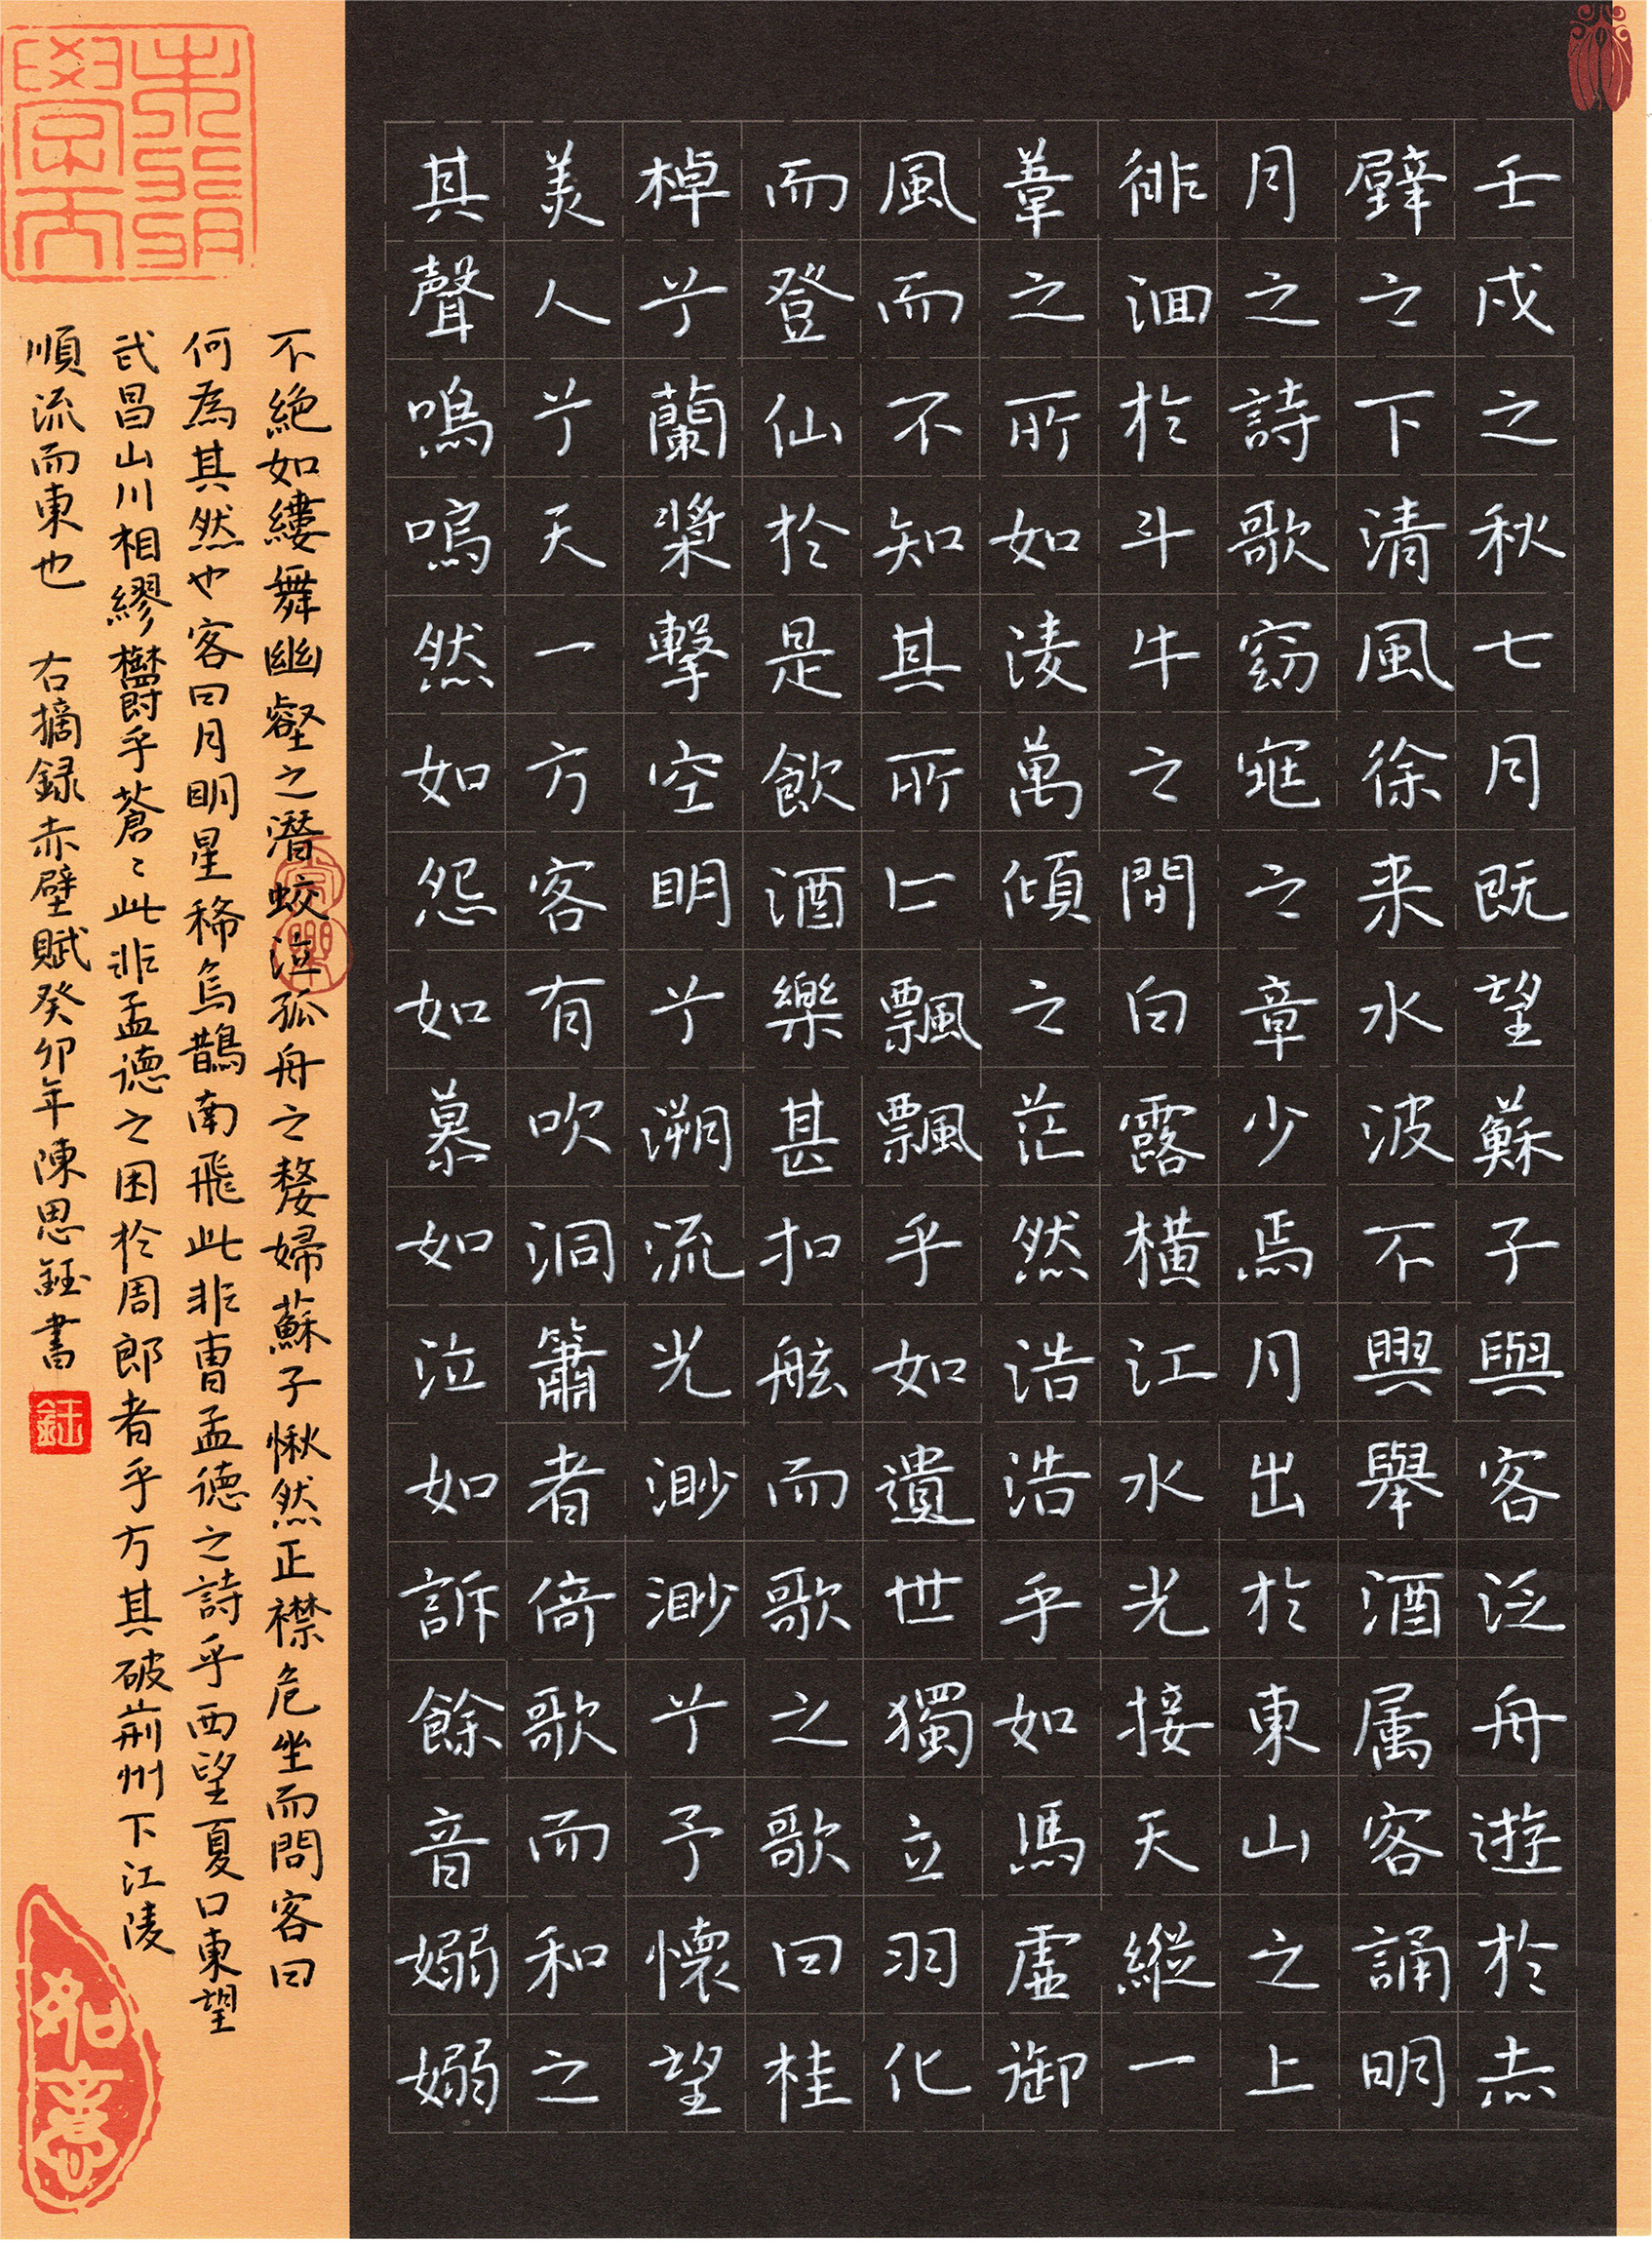 壬戌之秋七月既望蘇子與客泛舟遊於赤
壁之下清風徐来水波不興舉酒属客誦明
月之詩歌窈窕之章少焉月出於東山之上
徘徊於斗牛之間白露横江水光接天縱一
葦之所如淩萬傾之茫然浩浩乎如馮虛御
風而不知其所止飄飄乎如遺世獨立羽化
而登仙於是飲酒樂甚扣舷而歌之歌曰桂
棹兮蘭槳擊空明兮溯流光渺渺兮予懷望
美人兮天一方客有吹洞簫者倚歌而和之
其聲嗚嗚然如怨如慕如泣如訴餘音嫋嫋
不絕如縷舞幽壑之潛蛟泣孤舟之嫠婦蘇子愀然正襟危坐而問客曰
何為其然也客曰月明星稀烏鵲南飛此非曹孟德之詩乎西望夏口東望
武昌山川相繆欝乎蒼〻此非孟德之困於周郎者乎方其破荊州下江陵
順流而東也 右摘録赤壁賦癸卯年陳思鈺書
鈺
如意